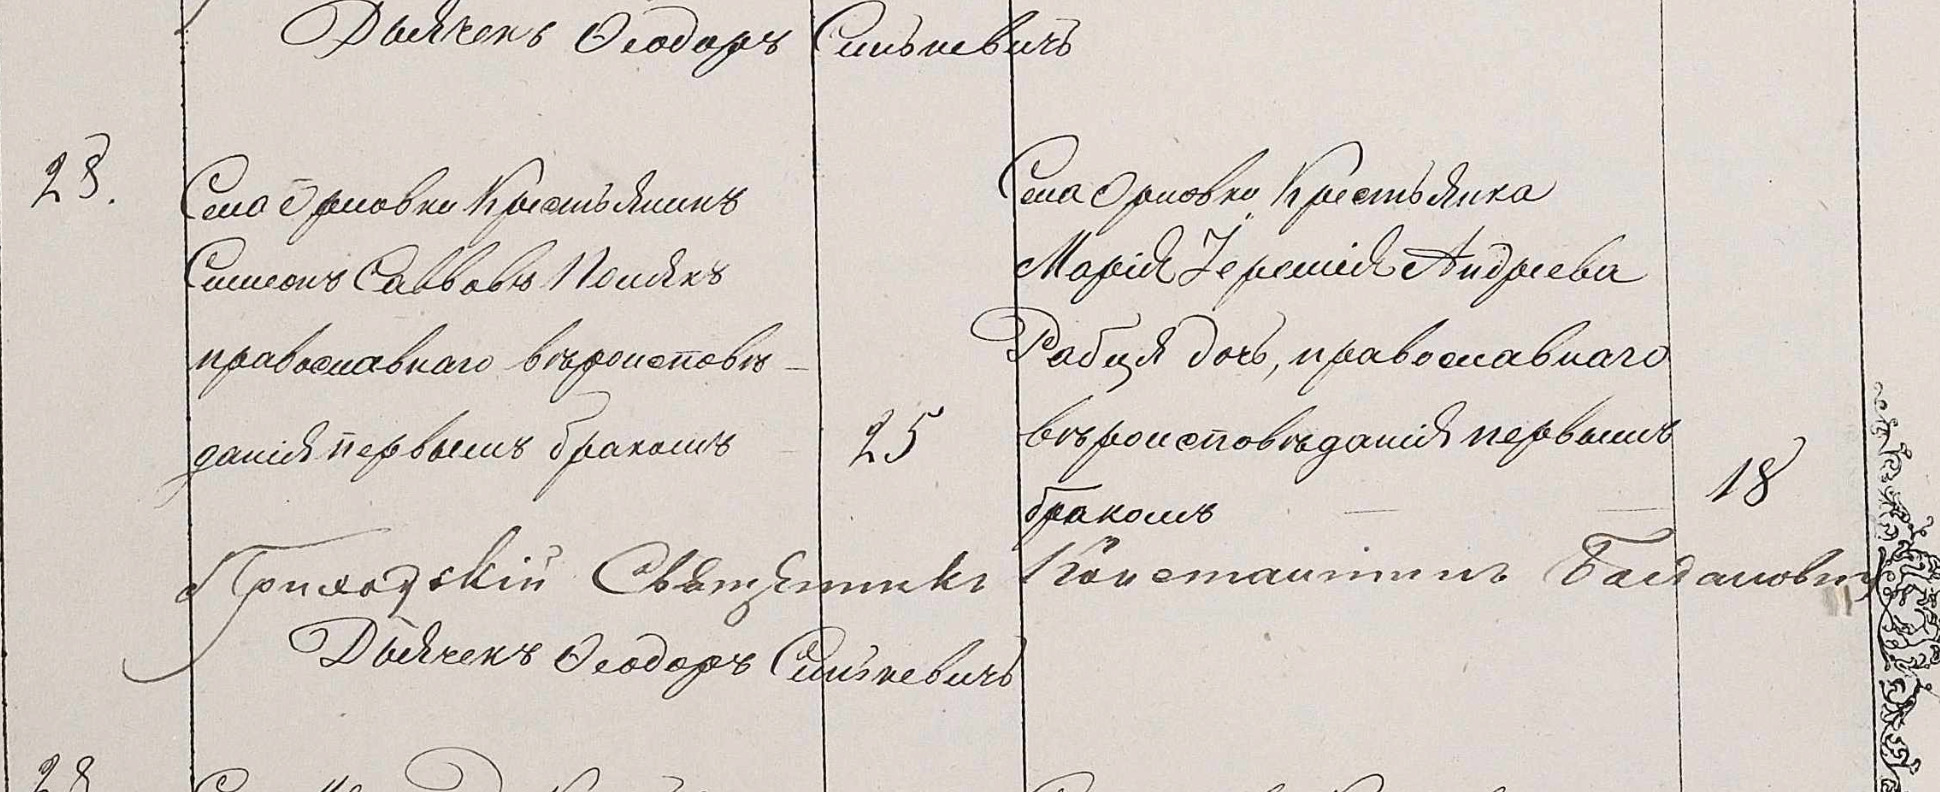 Дьячекъ Ѳеодоръ Синькевичъ
23.
Села Орловки Крестьянинъ
Симеонъ Саввовъ Полякъ
православнаго вѣроисповѣ-
данія первымъ бракомъ
25
Села Орловки Крестьянка
Марія Іеремія Андреева
дочь, православнаго
вѣроисповѣданія первымъ
бракомъ
18
Приходскій Священникъ Константинъ
Дьячекъ Ѳеодоръ Синькевичъ